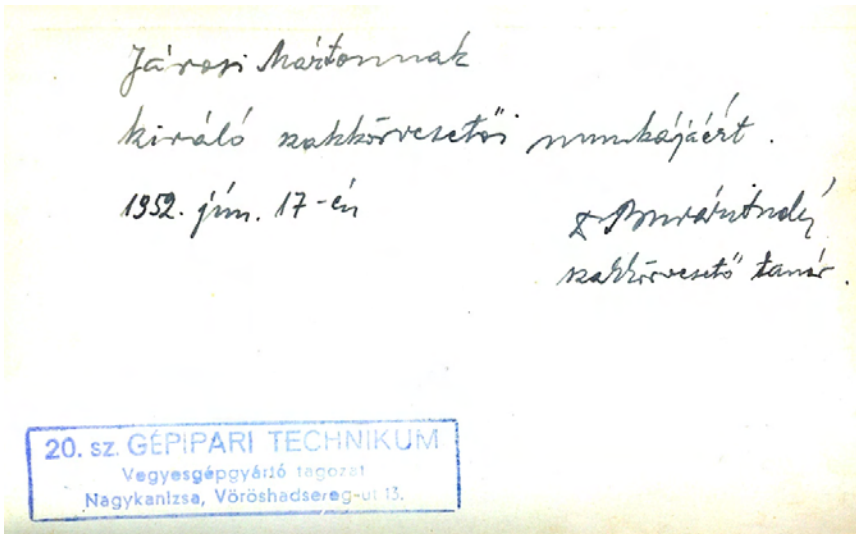 Járosi Mártonnak
kiváló szakkörvezetői munkájáért.
1952. jún. 17-én
szakkörvezető tanár.
20. sz. GÉPIPARI TECHNIKUM
Vegyesgépgyártó tagozat
Nagykanizsa, Vöröshadsereg-út 13.